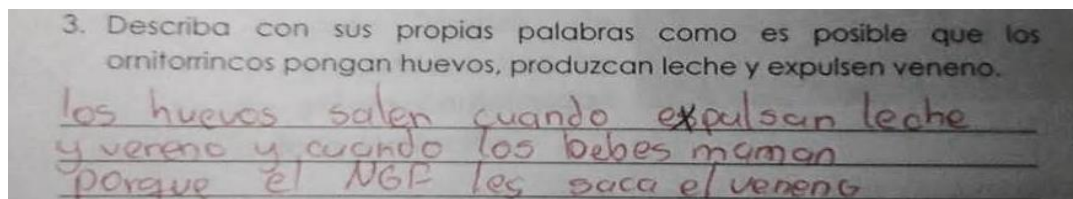 3. Describa con sus propias palabras como es posible que los
ornitorrincos pongan huevos, produzcan leche y expulsen veneno.
los huevos salen cuando expulsan leche
y veneno y cuando los bebes maman
porque el NGF les saca el veneno